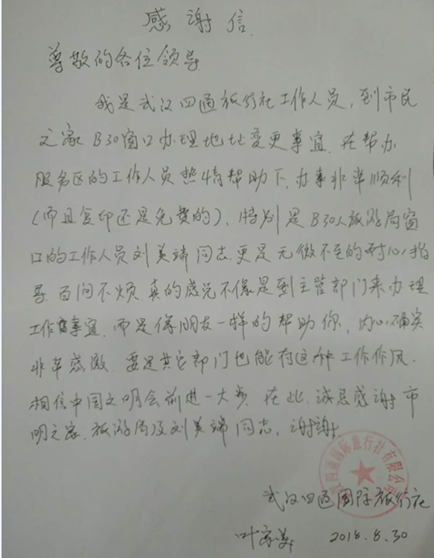 感谢信
尊敬的各位领导
我是武汉四通旅行社工作人员，到市民
之家B30窗口办理地址变更事宜．在帮办
服务区的工作人员热情帮助下，办事非常顺利
（而且复印还是免费的），特别是B30旅游局窗
口的工作人员刘美靖同志更是无微不至的耐心指
导百问不烦真的感觉不像是到主管部门来办理
工作事宜，而是像朋友一样的帮助你，内心确实
非常感激．要是其它部门也能有这种工作作风．
相信中国文明会前进一大步．在此，诚恳感谢市
明之家，旅游局及刘美靖同志，谢谢
武汉四通国际旅行社
2018.8.30